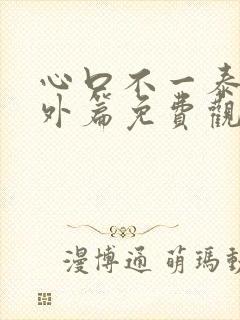 心口不一泰
外篇免費觀
漫博通 萌瑪動